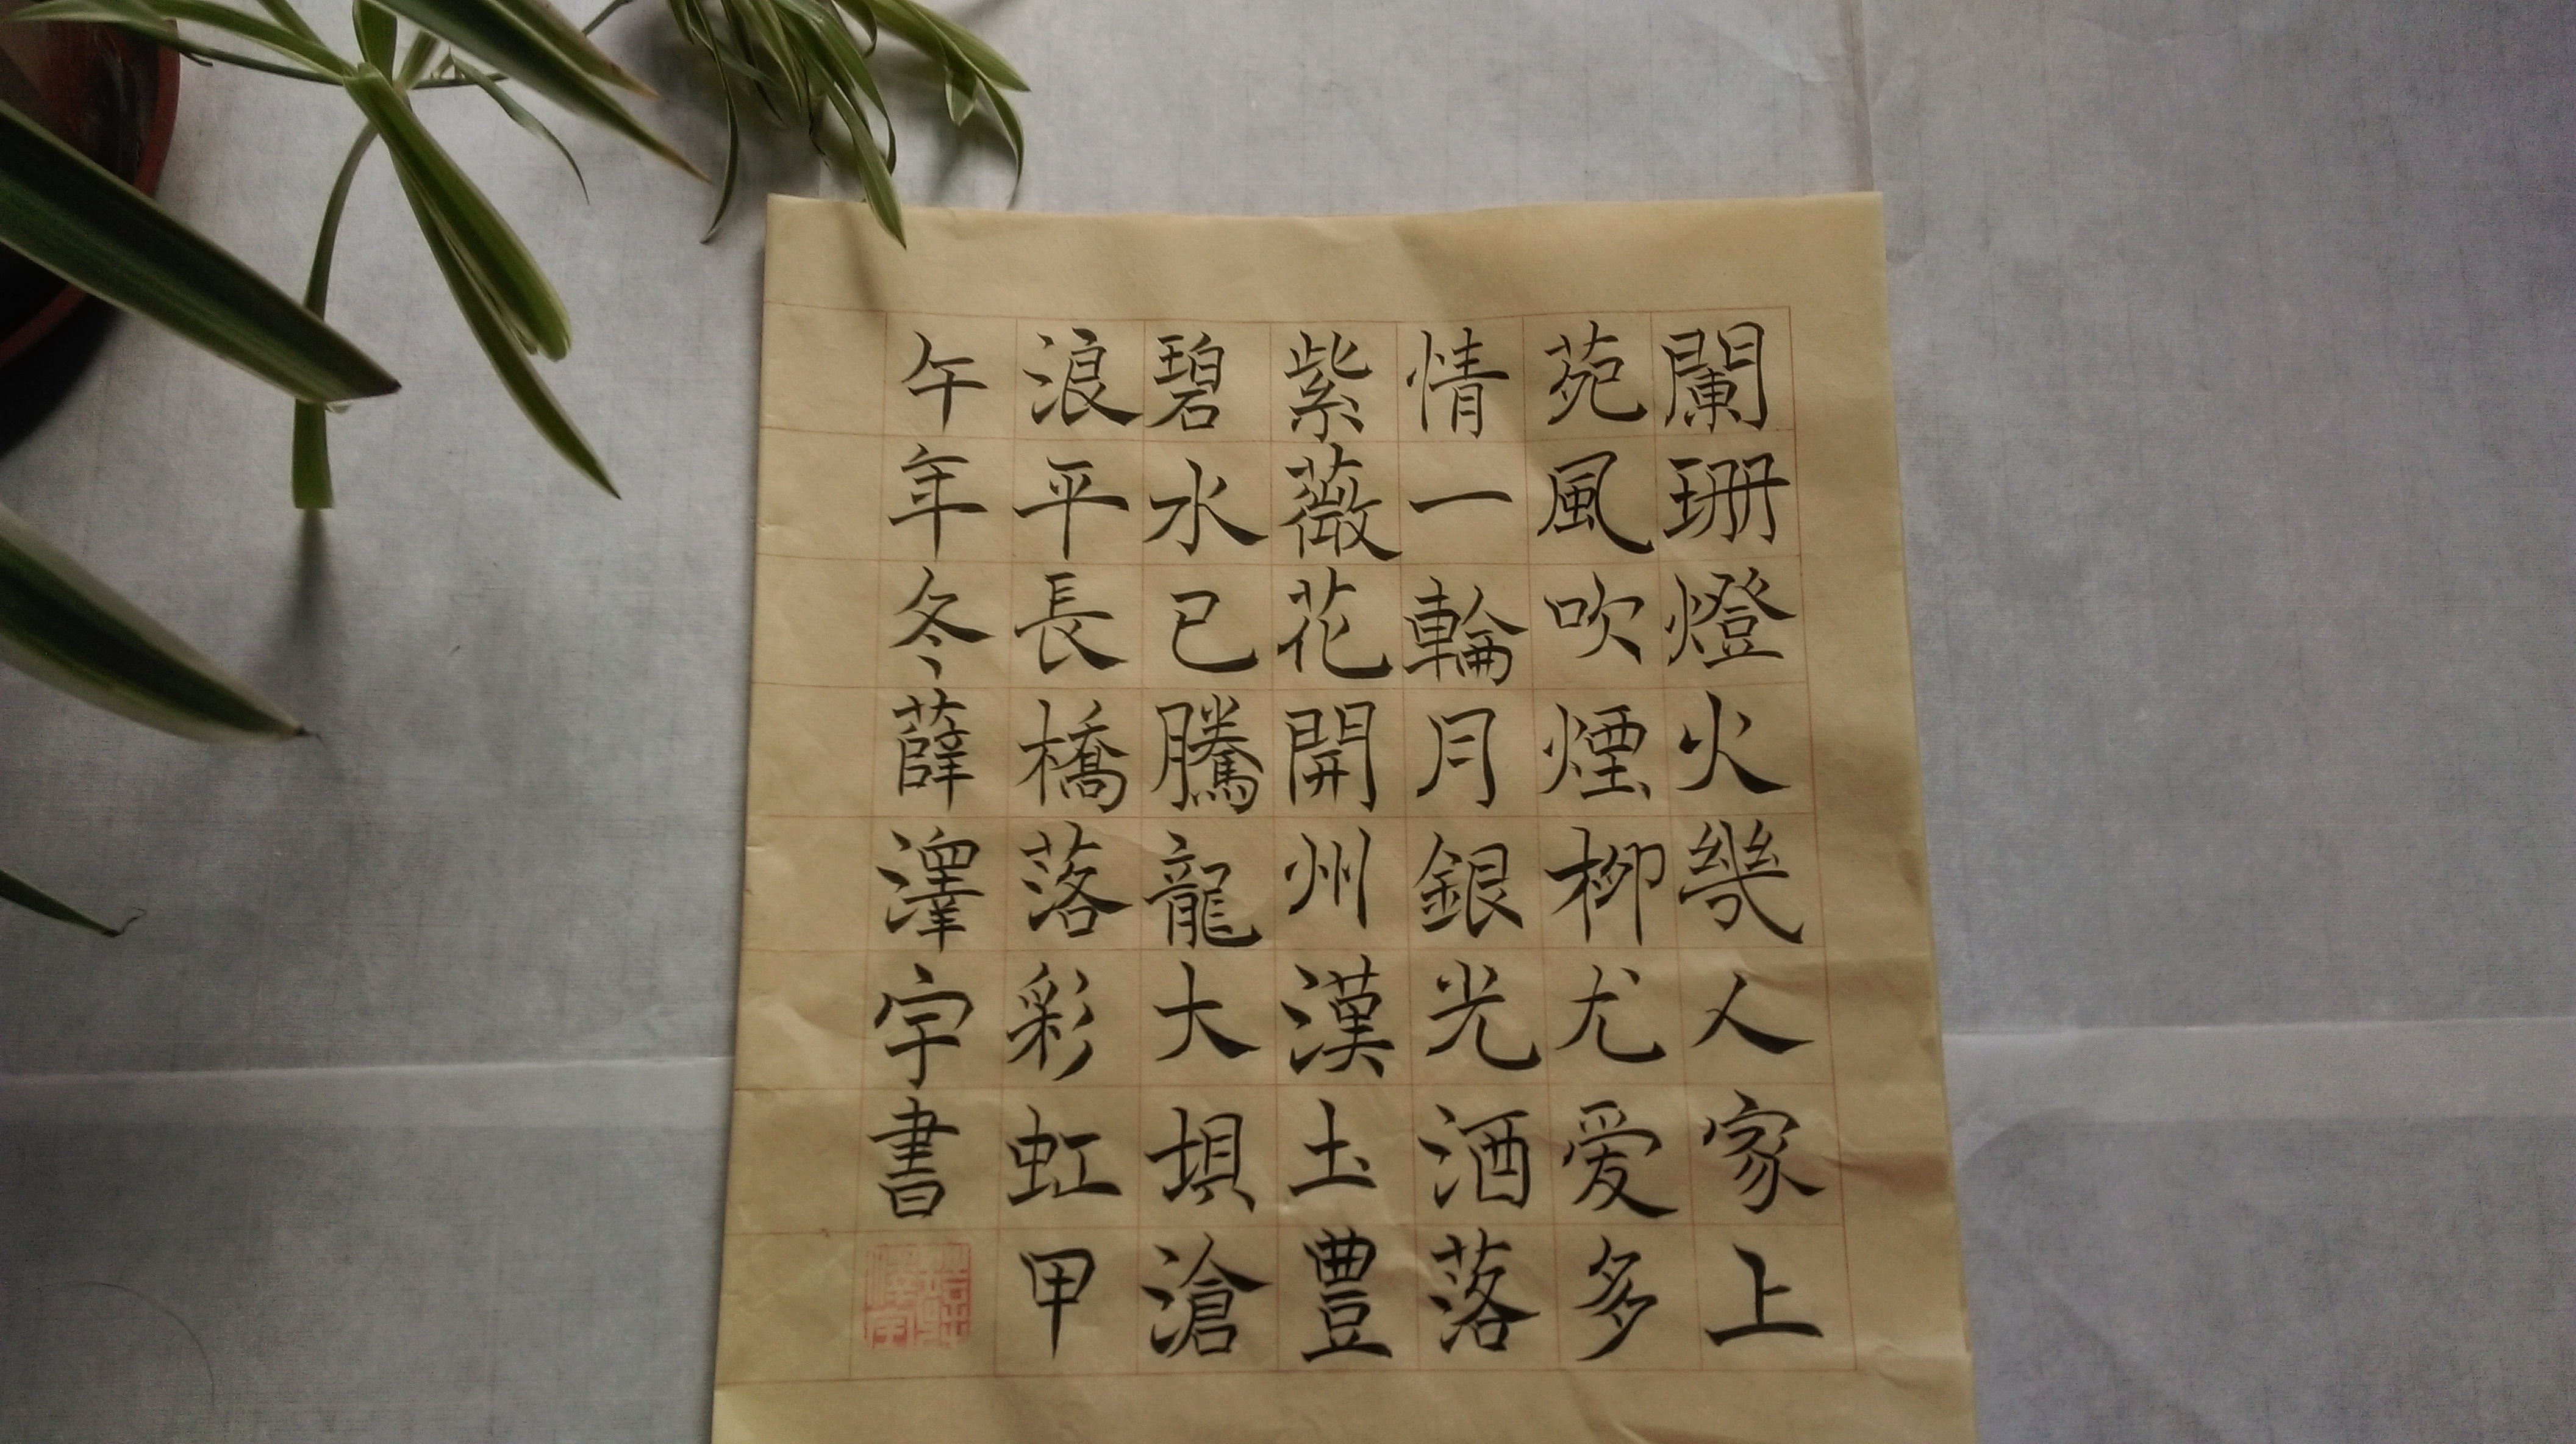 闌珊燈火幾人家上
苑風吹煙柳尤爱多
情一輪月銀光酒落
紫薇花開州漢土豐
碧水已騰龍大埧滄
浪平長橋落彩虹甲
午年冬薛澤宇書